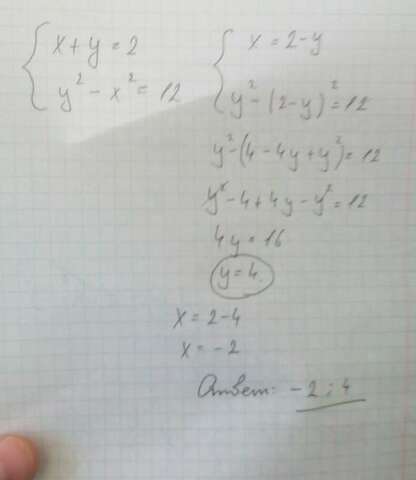 x + y = 2
y² - x² = 12
x = 2 - y
y² - (2 - y)² = 12
y² - (4 - 4y + y²) = 12
y² - 4 + 4y - y² = 12
4y = 16
y = 4.
x = 2 - 4
x = -2
Ответ: -2 ; 4